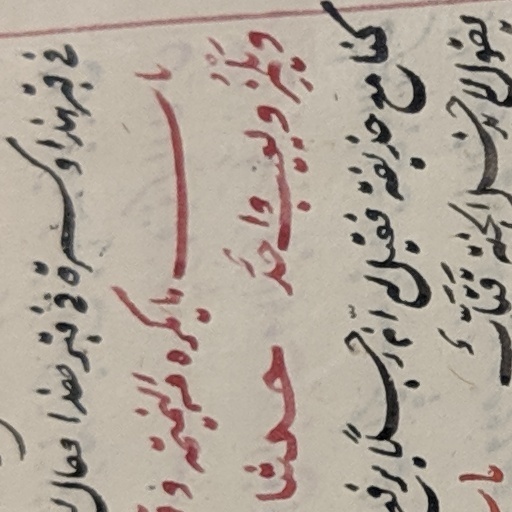 في قبر هذا وكسرة في قبر هذا فقال
باب ما يكره من النميمة
ويلمز ويعيب واحد حدثنا
كنا مع حذيفة فقيل له انّ رجلًا يرفع
يقول لا يدخل الجنة قَتَّاتٌ باب